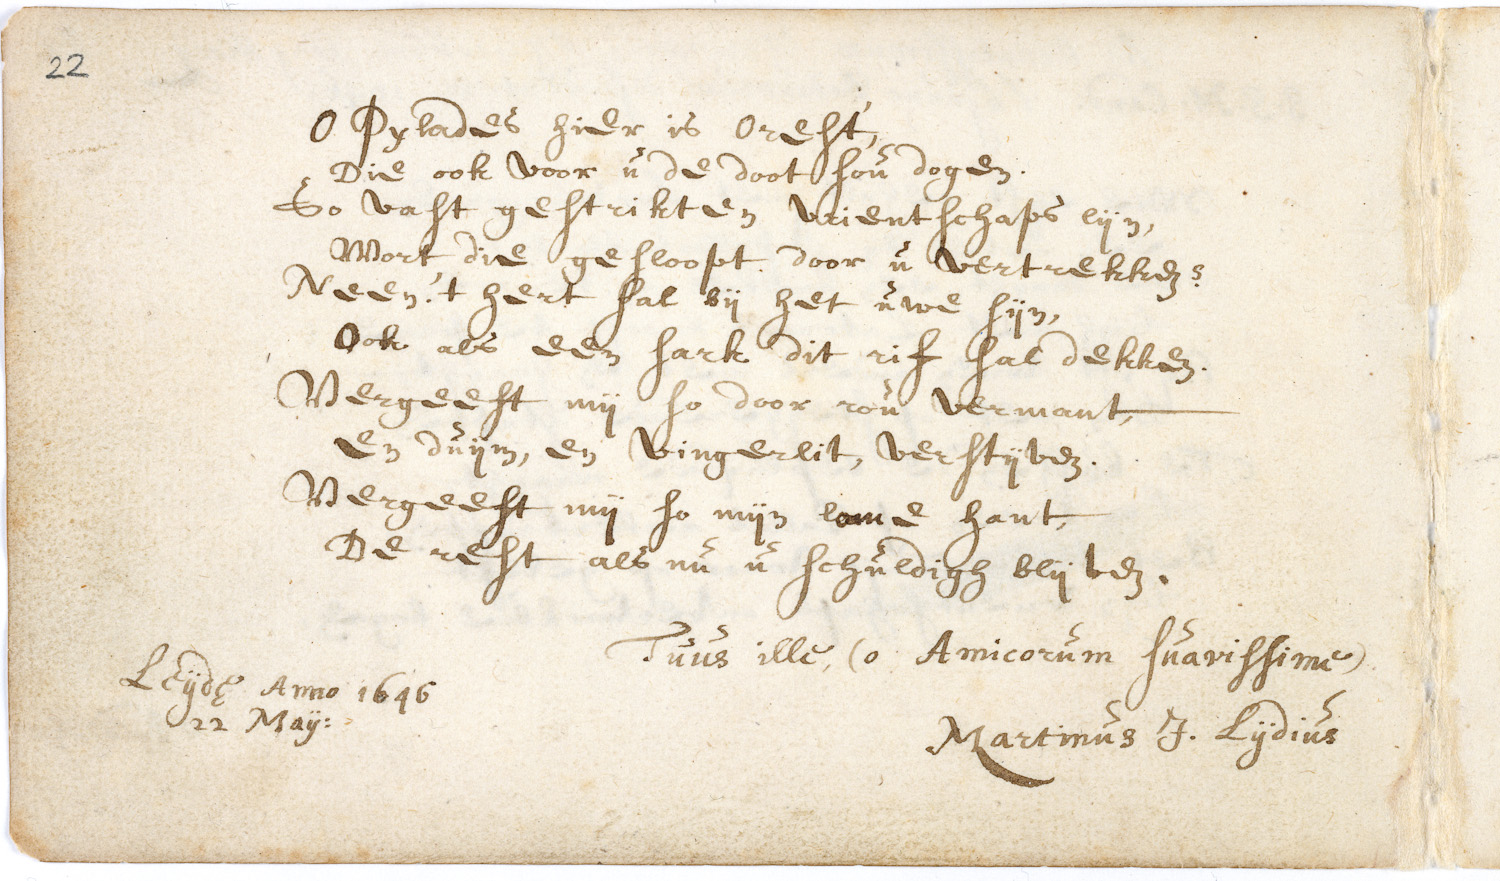 22
O Pylades hier is Orest,
Die ook voor u de doot sou dogen.
So vast gestrikten vrientschaps lijn,
Wort die gesloopt door u vertrekken?
Neen! 't hert sal bij het uwe sijn,
Ook als een sark dit rif sal dekken.
Vergeeft mij so door rou vermant,
en duijm, en vingerlit, verstijven.
Vergeeft mij so mijn lame hant,
De rest als nu u schuldigh blijven.
Tuus ille, (o Amicorum suavissime)
Leydę Anno 1646
22 Maÿ:
Martinus J. Lydius